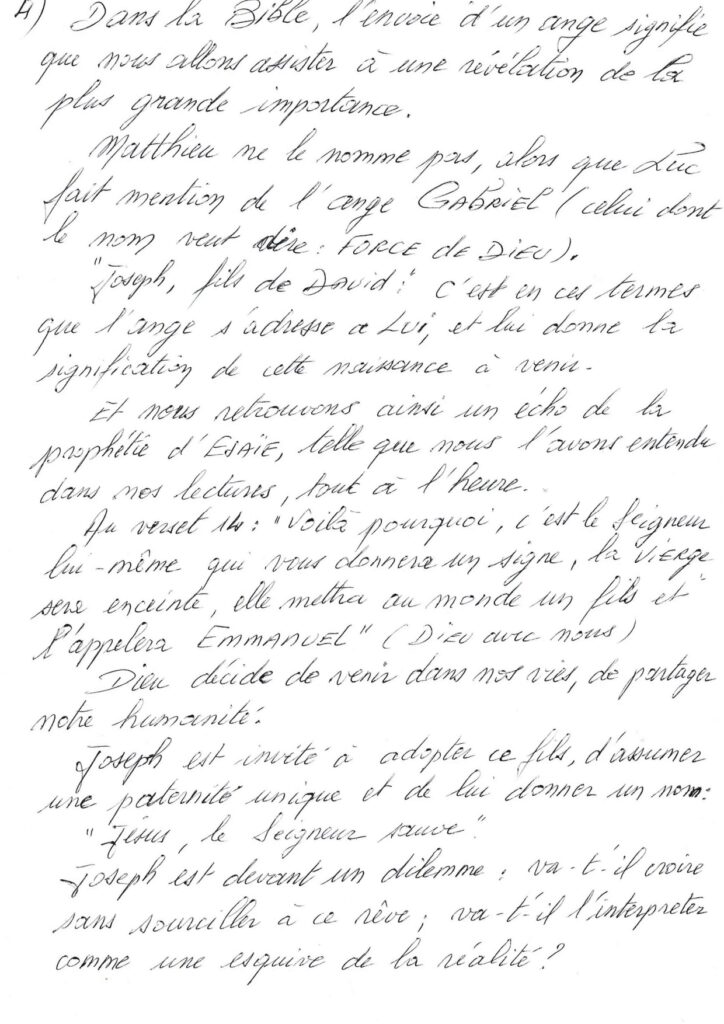 4) Dans la Bible, l'envoie d'un ange signifie
que nous allons assister à une révélation de la
plus grande importance.
Matthieu ne le nomme pas, alors que Luc
fait mention de l'ange GABRIEL (celui dont
le nom veut dire : FORCE de DIEU).
"Joseph, fils de David". C'est en ces termes
que l'ange s'adresse a Lui, et lui donne la
signification de cette naissance à venir.
Et nous retrouvons ainsi un écho de la
prophétie d'ESAIE, telle que nous l'avons entendu
dans nos lectures, tout à l'heure.
Au verset 14 : "Voilà pourquoi, c'est le Seigneur
lui-même qui vous donnera un signe, la VIERGE
sera enceinte, elle mettra au monde un fils et"
l'appelera EMMANUEL" (DIEU avec nous)
Dieu décide de venir dans nos vies, de partager
notre humanité.
Joseph est invité à adopter ce fils, d'assumer
une paternité unique et de lui donner un nom :
"Jésus, le Seigneur sauve".
Joseph est devant un dilemme : va-t'-il croire
sans sourciller à ce rêve ; va-t'-il l'interpreter
comme une esquive de la réalité ?